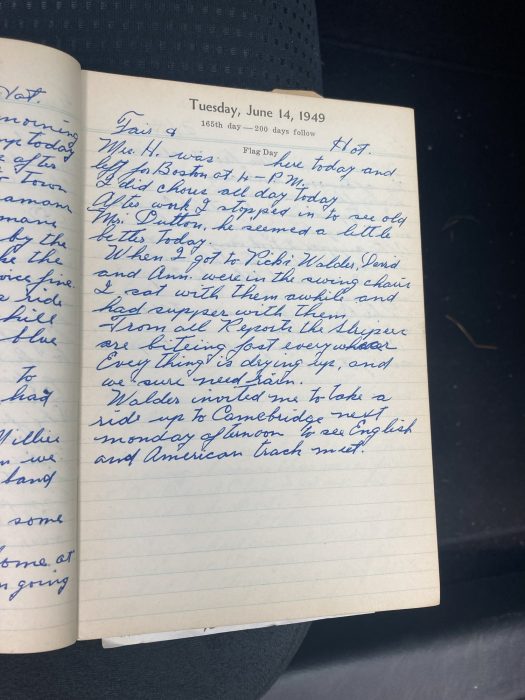 Hot.
morning
today
after
Town
by the
the
fine.
ride
hill
blue
to
had
Willie
we
band
some
home at
going
Tuesday, June 14, 1949
165th day—200 days follow
Flag Day
Fair & Hot.
Mrs. H. was here today and
left for Boston at 4-P.M.
I did chores all day today
After work I stopped in to see old
Mr. Dutton, he seemed a little
better today.
When I got to Pick's Walder, David
and Ann were in the swing chair
I sat with them awhile and
had supper with them
From all Reports the Stripers
are biteing fast everywhear
Everything is drying up, and
we sure need rain.
Walder invited me to take a
ride up to Camebridge next
monday afternoon to see English
and American track meet.